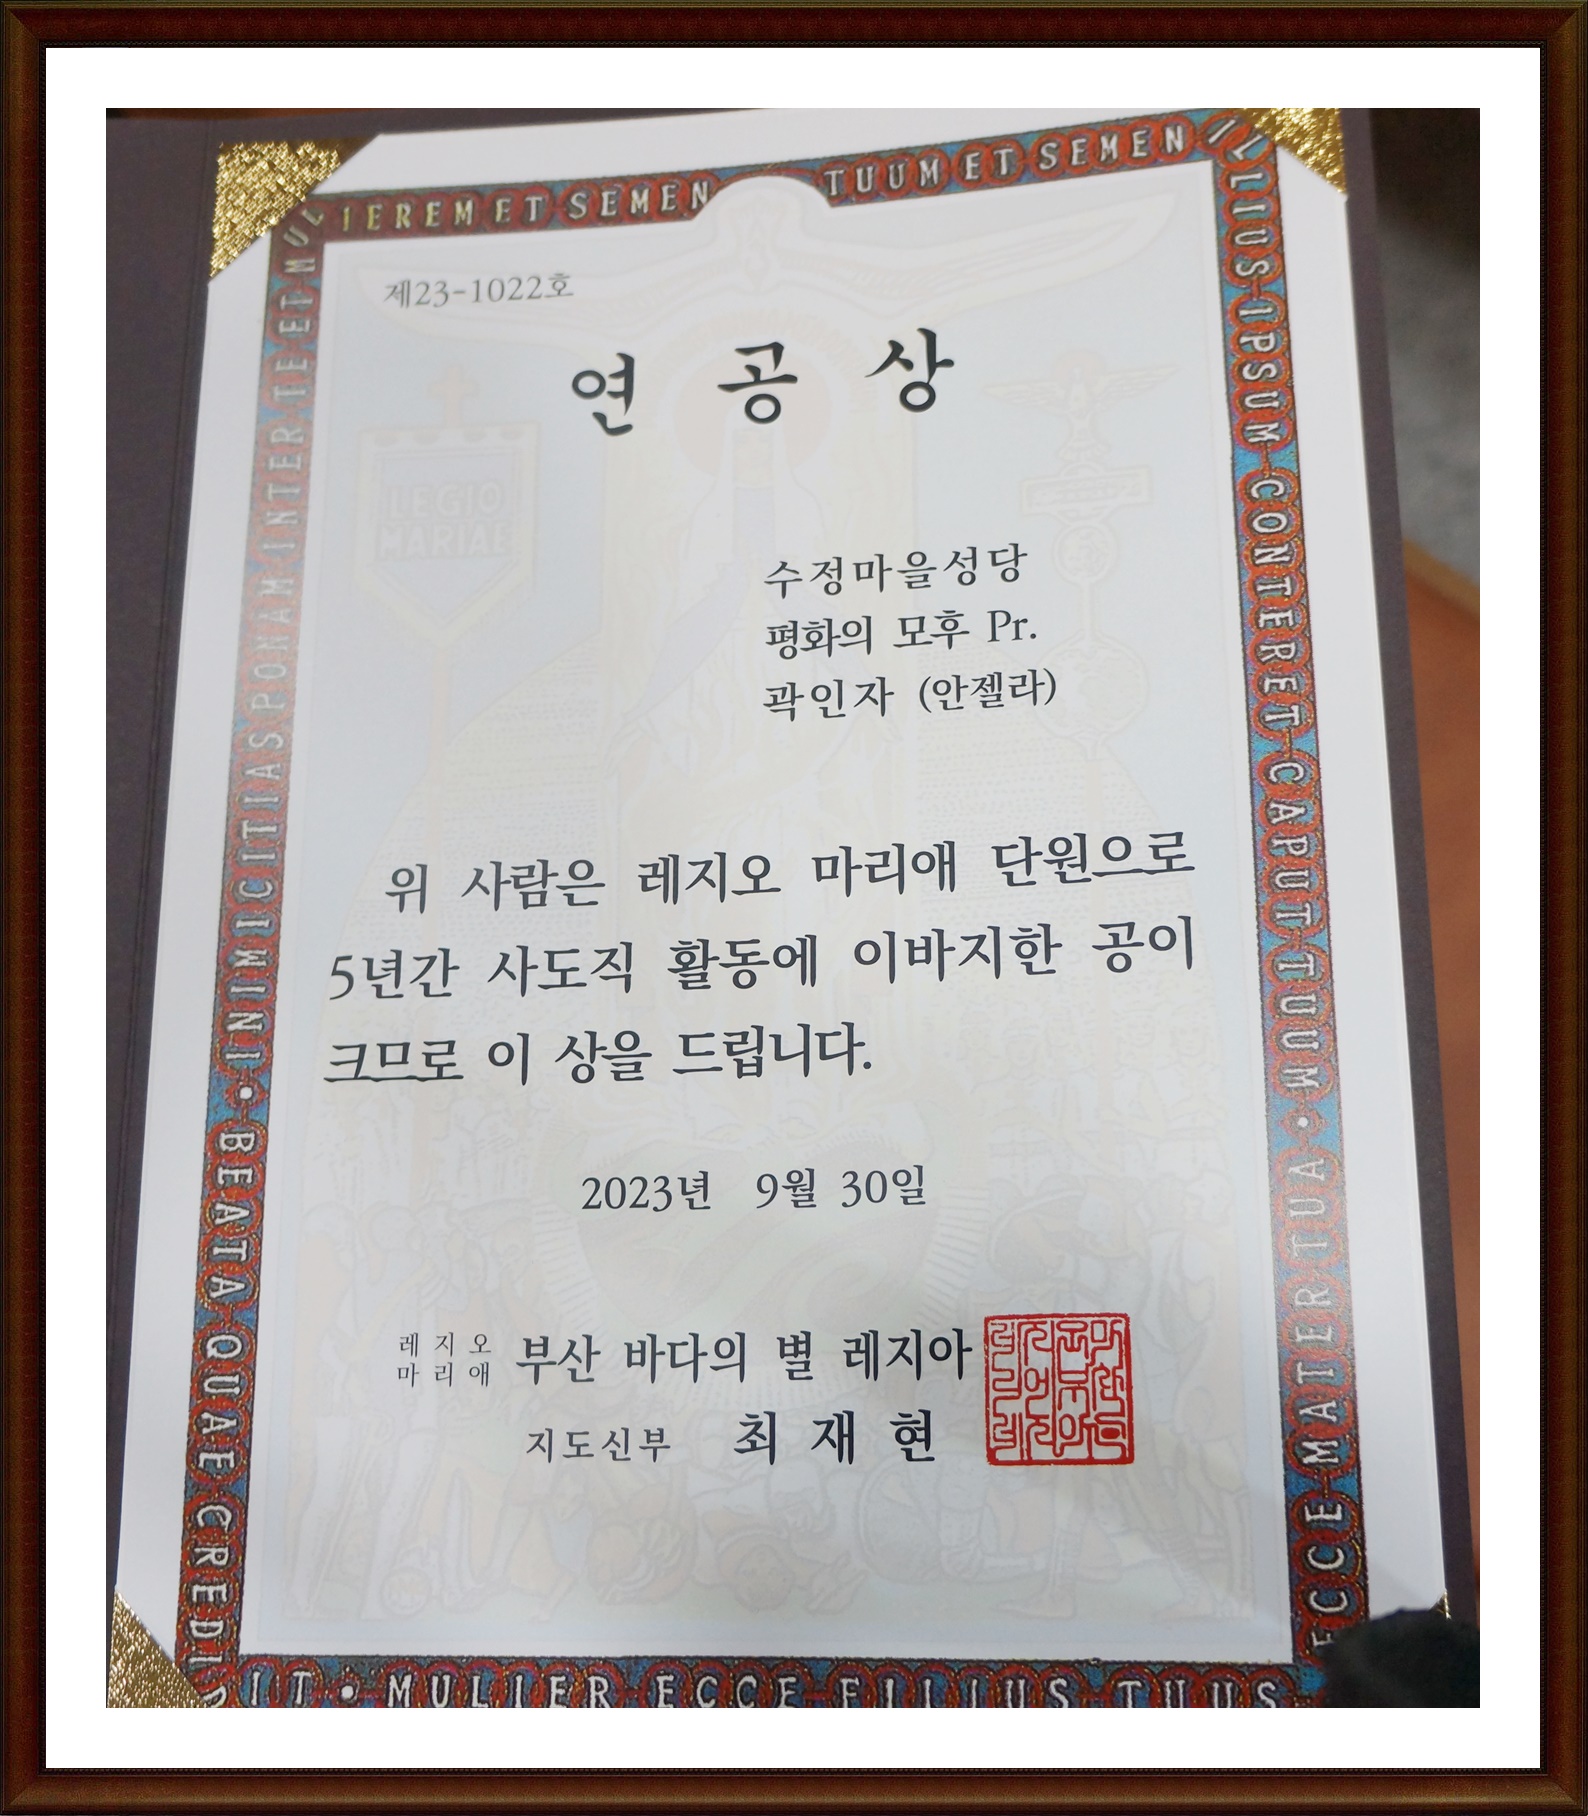 INIMICITIAS PONAM INTER TE ET MULIEREM ET SEMEN TUUM ET SEMEN ILLIUS IPSUM CONTERET CAPUT TUUM
제23-1022호
연 공 상
LEGIO
MARIAE
수정마을성당
평화의 모후 Pr.
곽인자 (안젤라)
위 사람은 레지오 마리애 단원으로
5년간 사도직 활동에 이바지한 공이
크므로 이 상을 드립니다.
2023년 9월 30일
레지오
마리애
부산 바다의 별 레지아
지도신부 최 재 현
BEATA QUAE CREDIDIT • MULIER ECCE FILIUS TUUS
ECCE MATER TUA